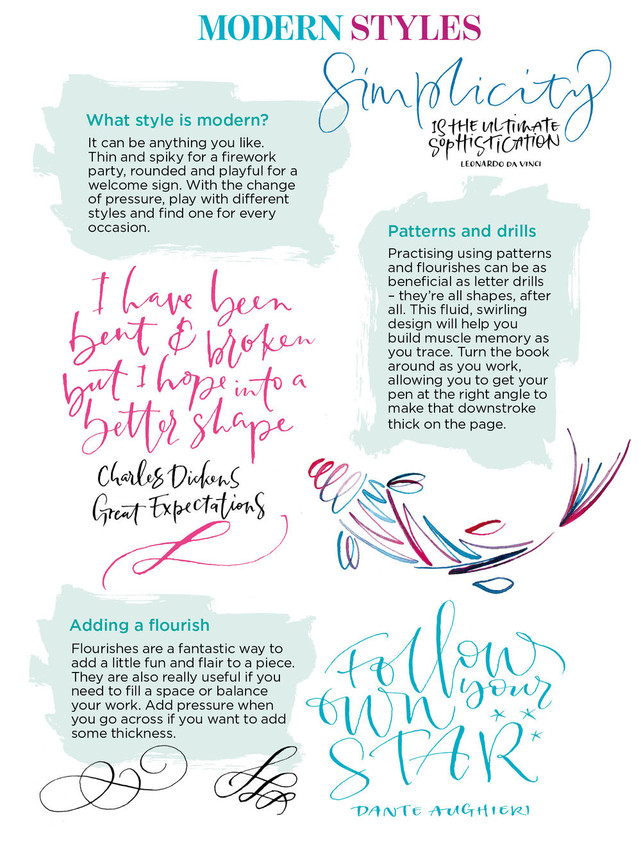 MODERN STYLES
Simplicity
IS THE ULTIMATE
SOPHISTICATION
LEONARDO DA VINCI
What style is modern?
It can be anything you like.
Thin and spiky for a firework
party, rounded and playful for a
welcome sign. With the change
of pressure, play with different
styles and find one for every
occasion.
Patterns and drills
Practising using patterns
and flourishes can be as
beneficial as letter drills
– they’re all shapes, after
all. This fluid, swirling
design will help you
build muscle memory as
you trace. Turn the book
around as you work,
allowing you to get your
pen at the right angle to
make that downstroke
thick on the page.
I have been
bent & broken
but I hope into a
better shape
Charles Dickens
Great Expectations
Adding a flourish
Flourishes are a fantastic way to
add a little fun and flair to a piece.
They are also really useful if you
need to fill a space or balance
your work. Add pressure when
you go across if you want to add
some thickness.
Follow
your
own
STAR
DANTE ALIGHIERI